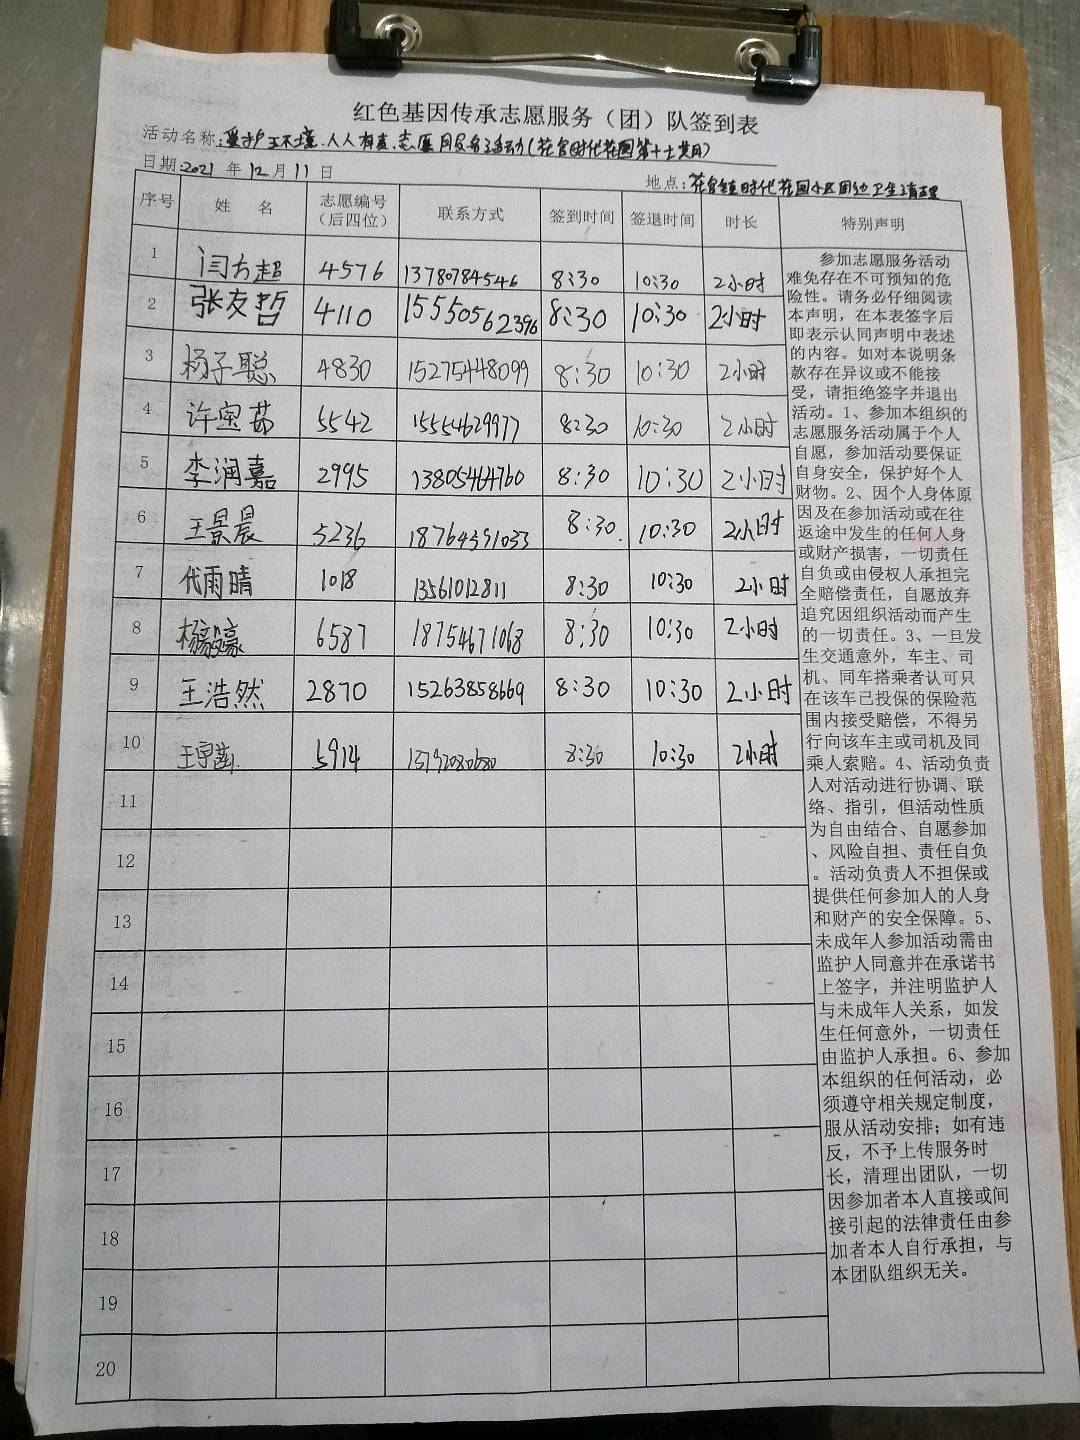 红色基因传承志愿服务（团）队签到表
活动名称:爱护环境.人人有责.志愿服务活动(花官时代花园第十七期)
日期:2021年12月11日
地点:花官镇时代花园小区周边卫生清理
序号 姓名 志愿编号（后四位） 联系方式 签到时间 签退时间 时长 特别声明
1 闫方超 4576 13780784546 8:30 10:30 2小时
2 张友哲 4110 15550562396 8:30 10:30 2小时
3 杨子聪 4830 15275448099 8:30 10:30 2小时
4 许宝茹 5542 15554629977 8:30 10:30 2小时
5 李润嘉 2995 13805464760 8:30 10:30 2小时
6 王景晨 5236 18764591033 8:30. 10:30 2小时
7 代雨晴 1018 13561012811 8:30 10:30 2小时
8 6587 18754671068 8:30 10:30 2小时
9 王浩然 2870 15263858669 8:30 10:30 2小时
10 5914 8:30 10:30 2小时
11
12
13
14
15
16
17
18
19
20
参加志愿服务活动
难免存在不可预知的危
险性。请务必仔细阅读
本声明，在本表签字后
即表示认同声明中表述
的内容。如对本说明条
款存在异议或不能接
受，请拒绝签字并退出
活动。1、参加本组织的
志愿服务活动属于个人
自愿，参加活动要保证
自身安全，保护好个人
财物。2、因个人身体原
因及在参加活动或在往
返途中发生的任何人身
或财产损害，一切责任
自负或由侵权人承担完
全赔偿责任，自愿放弃
追究因组织活动而产生
的一切责任。3、一旦发
生交通意外，车主、司
机、同车搭乘者认可只
在该车已投保的保险范
围内接受赔偿，不得另
行向该车主或司机及同
乘人索赔。4、活动负责
人对活动进行协调、联
络、指引，但活动性质
为自由结合、自愿参加
、风险自担、责任自负
。活动负责人不担保或
提供任何参加人的人身
和财产的安全保障。5、
未成年人参加活动需由
监护人同意并在承诺书
上签字，并注明监护人
与未成年人关系，如发
生任何意外，一切责任
由监护人承担。6、参加
本组织的任何活动，必
须遵守相关规定制度，
服从活动安排；如有违
反，不予上传服务时
长，清理出团队，一切
因参加者本人直接或间
接引起的法律责任由参
加者本人自行承担，与
本团队组织无关。